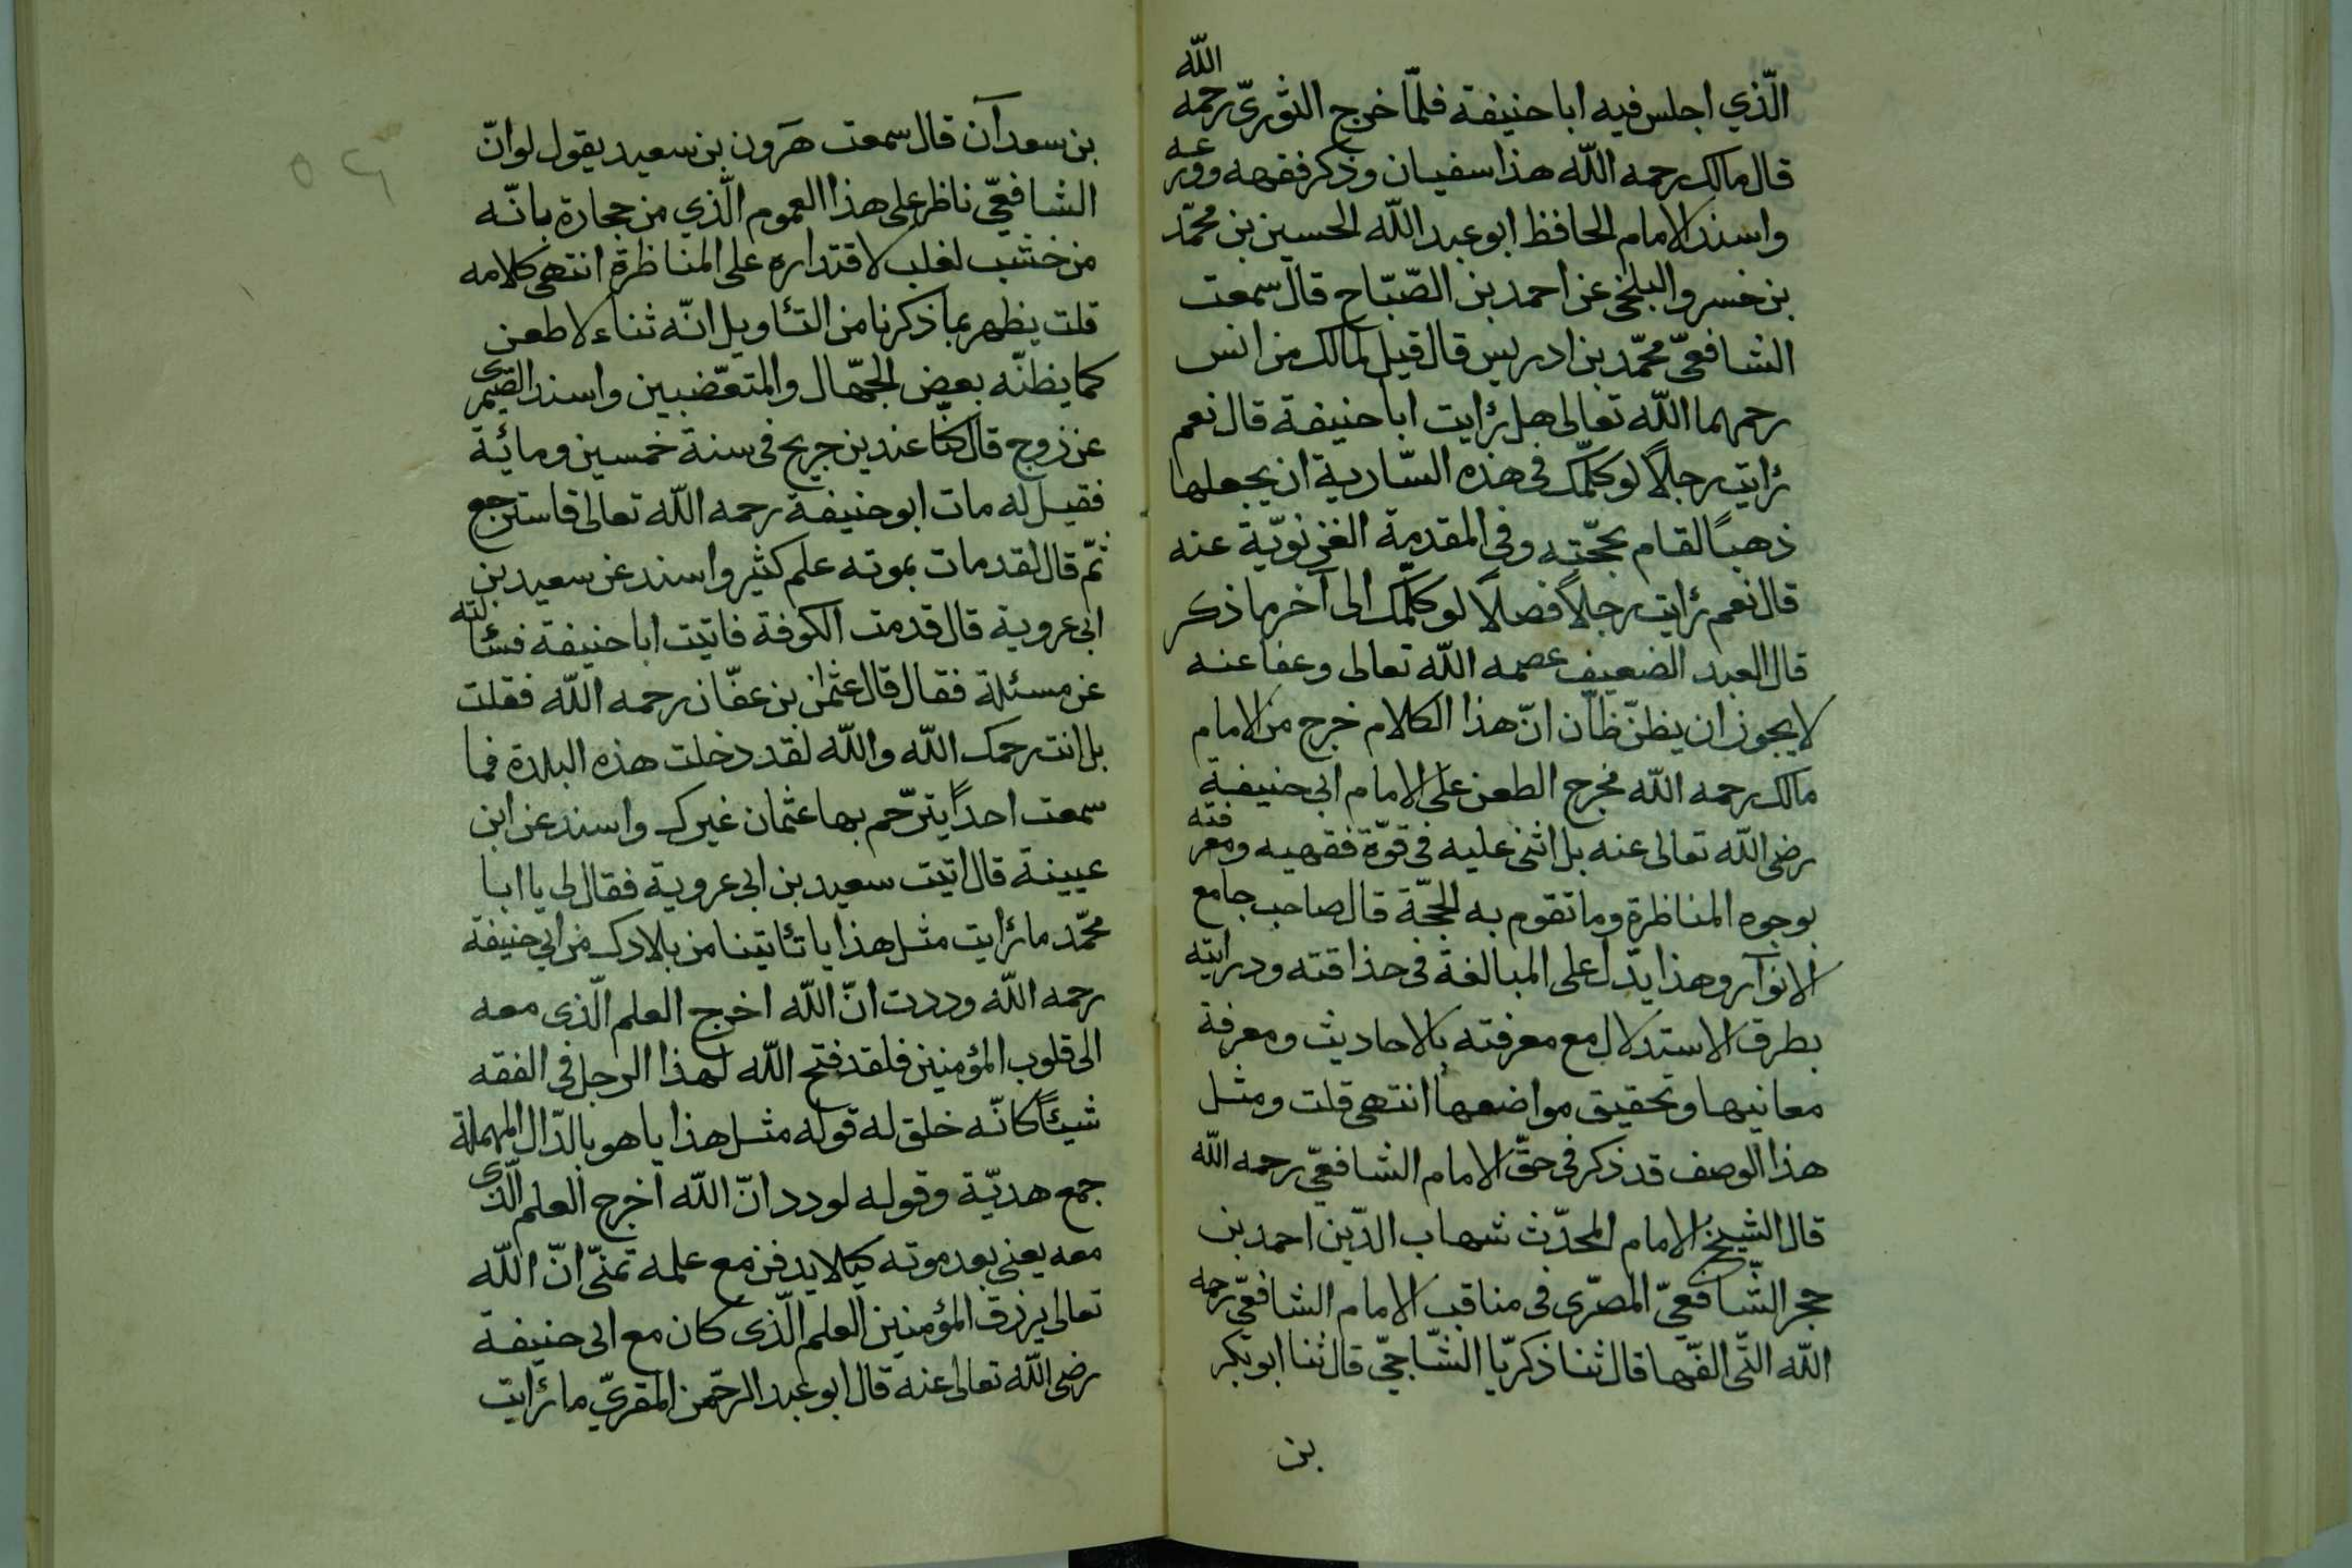 الّذي اجلس فيه ابا حنيفة فلمّا خرج الثوريّ رحمه الله
قال مالك رحمه الله هذا سفيان وذكر فقهه وورعه
واسند الامام الحافظ ابو عبد الله الحسين بن محمّد
بن خسرو البلخي عن احمد بن الصّبّاح قال سمعت
الشافعيّ محمّد بن ادريس قال قيل لمالك بن انس
رحمهما الله تعالى هل رٔايت ابا حنيفة قال نعم
رٔايت رجلاً لو كلّمك في هذه السّارية ان يجعلها
ذهباً لقام بحجّته وفي المقدمة الغزنويّة عنه
قال نعم رٔايت رجلاً فصلاً لو كلّمك الى آخر ما ذكر
قال العبد الضعيف عصمه الله تعالى وعفا عنه
لا يجوز ان يظنّ ظانّ انّ هذا الكلام خرج من الامام
مالك رحمه الله مخرج الطعن على الامام ابي حنيفة
رضى الله تعالى عنه بل اثنى عليه في قوّة فقهيه ومعرفته
بوجوه المناظرة وما تقوم به الحجّة قال صاحب جامع
الانوآر وهذا يدّل على المبالغة في حذاقته ودرايته
بطرق الاستدلال مع معرفته بالاحاديث ومعرفة
معانيها وتحقيق مواضعها انتهى قلت ومثل
هذا الوصف قد ذكر في حقّ الامام الشافعيّ رحمه الله
قال الشيخ الامام المحدّث شهاب الدّين احمد بن
حجر الشّافعيّ المصرّى في مناقب الامام الشافعيّ رحمه
الله التّى الفّها قال ثنا ذكريّا الشّاجيّ قال ثنا ابو بكر
بن
بن سعدآن قال سمعت هٰرون بن سعيد يقول لو انّ
الشافعيّ ناظر على هذا العموم الّذي من حجارة بانّه
من خشب لغلب لاقتداره على المناظرة انتهى كلامه
قلت يظهر بما ذكرنا من التٔاويل انّه ثناء لا طعن
كما يظنّه بعض الجهّال والمتعصّبين واسند الصّيمرى
عن زوج قال كنّا عند بن جريج في سنة خمسين ومائة
فقيل له مات ابو حنيفة رحمه الله تعالى فاسترجع
ثمّ قال لقد مات بموته علم كثير واسند عن سعيد بن
ابي عروبة قال قدمت الكوفة فاتيت ابا حنيفة فسٔالته
عن مسئلة فقال قال عثمٰن بن عفّان رحمه الله فقلت
بل انت رحمك الله والله لقد دخلت هذه البلدة فما
سمعت احداً يترّحم بها عثمان غيرك واسند عن ابن
عيينة قال اتيت سعيد بن ابي عروبة فقال لي يا ابا
محمّد ما رٔايت مثل هذايا تٔاتينا من بلادك من ابي حنيفة
رحمه الله وددت انّ الله اخرج العلم الّذى معه
الى قلوب المؤمنين فلقد فتح الله لهذا الرجل في الفقه
شيئاً كانّه خلق له قوله مثل هذايا هو بالدّال المهملة
جمع هديّة وقوله لودد انّ الله اخرج العلم الّذى
معه يعني بعد موته كيلا يدفن مع علمه تمنّى انّ الله
تعالى يرزق المؤمنين العلم الّذى كان مع ابي حنيفة
رضى الله تعالى عنه قال ابو عبد الرحّمن المقريّ ما رٔايت